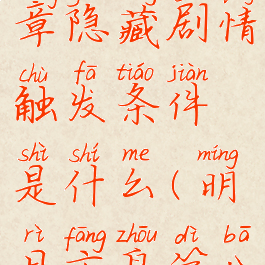 章隐藏剧情
chù fā tiáo jiàn
触发条件
shì shí me míng
是什么(明
rì fāng zhōu dì bā
日方舟第八